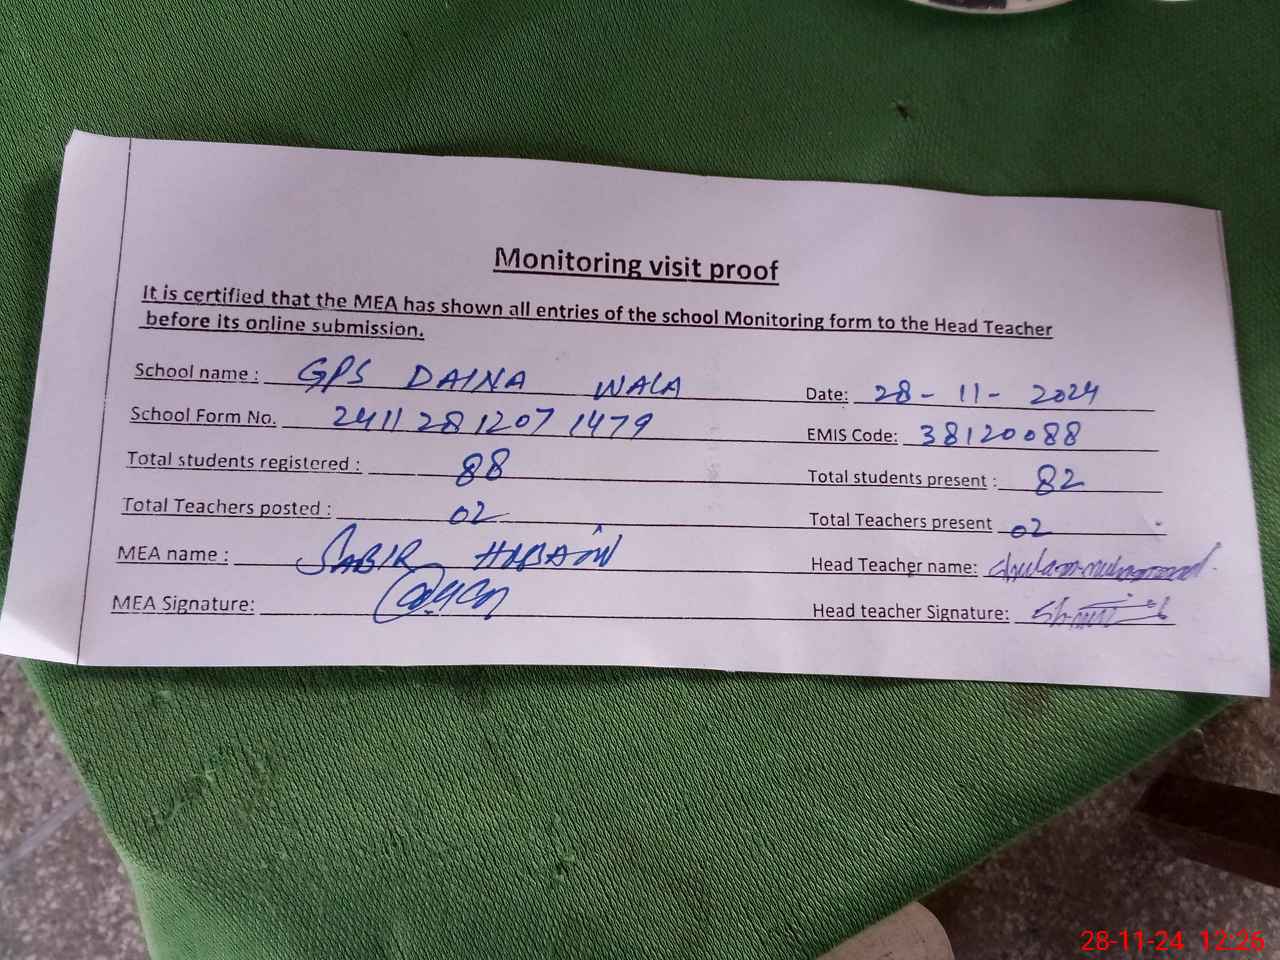 Monitoring visit proof
It is certified that the MEA has shown all entries of the school Monitoring form to the Head Teacher
before its online submission.
School name : GPS DAINA WALA Date: 28-11-2024
School Form No. 2411 28 1207 1479 EMIS Code: 38120088
Total students registered : 88 Total students present : 82
Total Teachers posted : 02 Total Teachers present 02
MEA name : SABIR Head Teacher name: Ghulam muhammad
MEA Signature: Head teacher Signature:
28-11-24 12:26